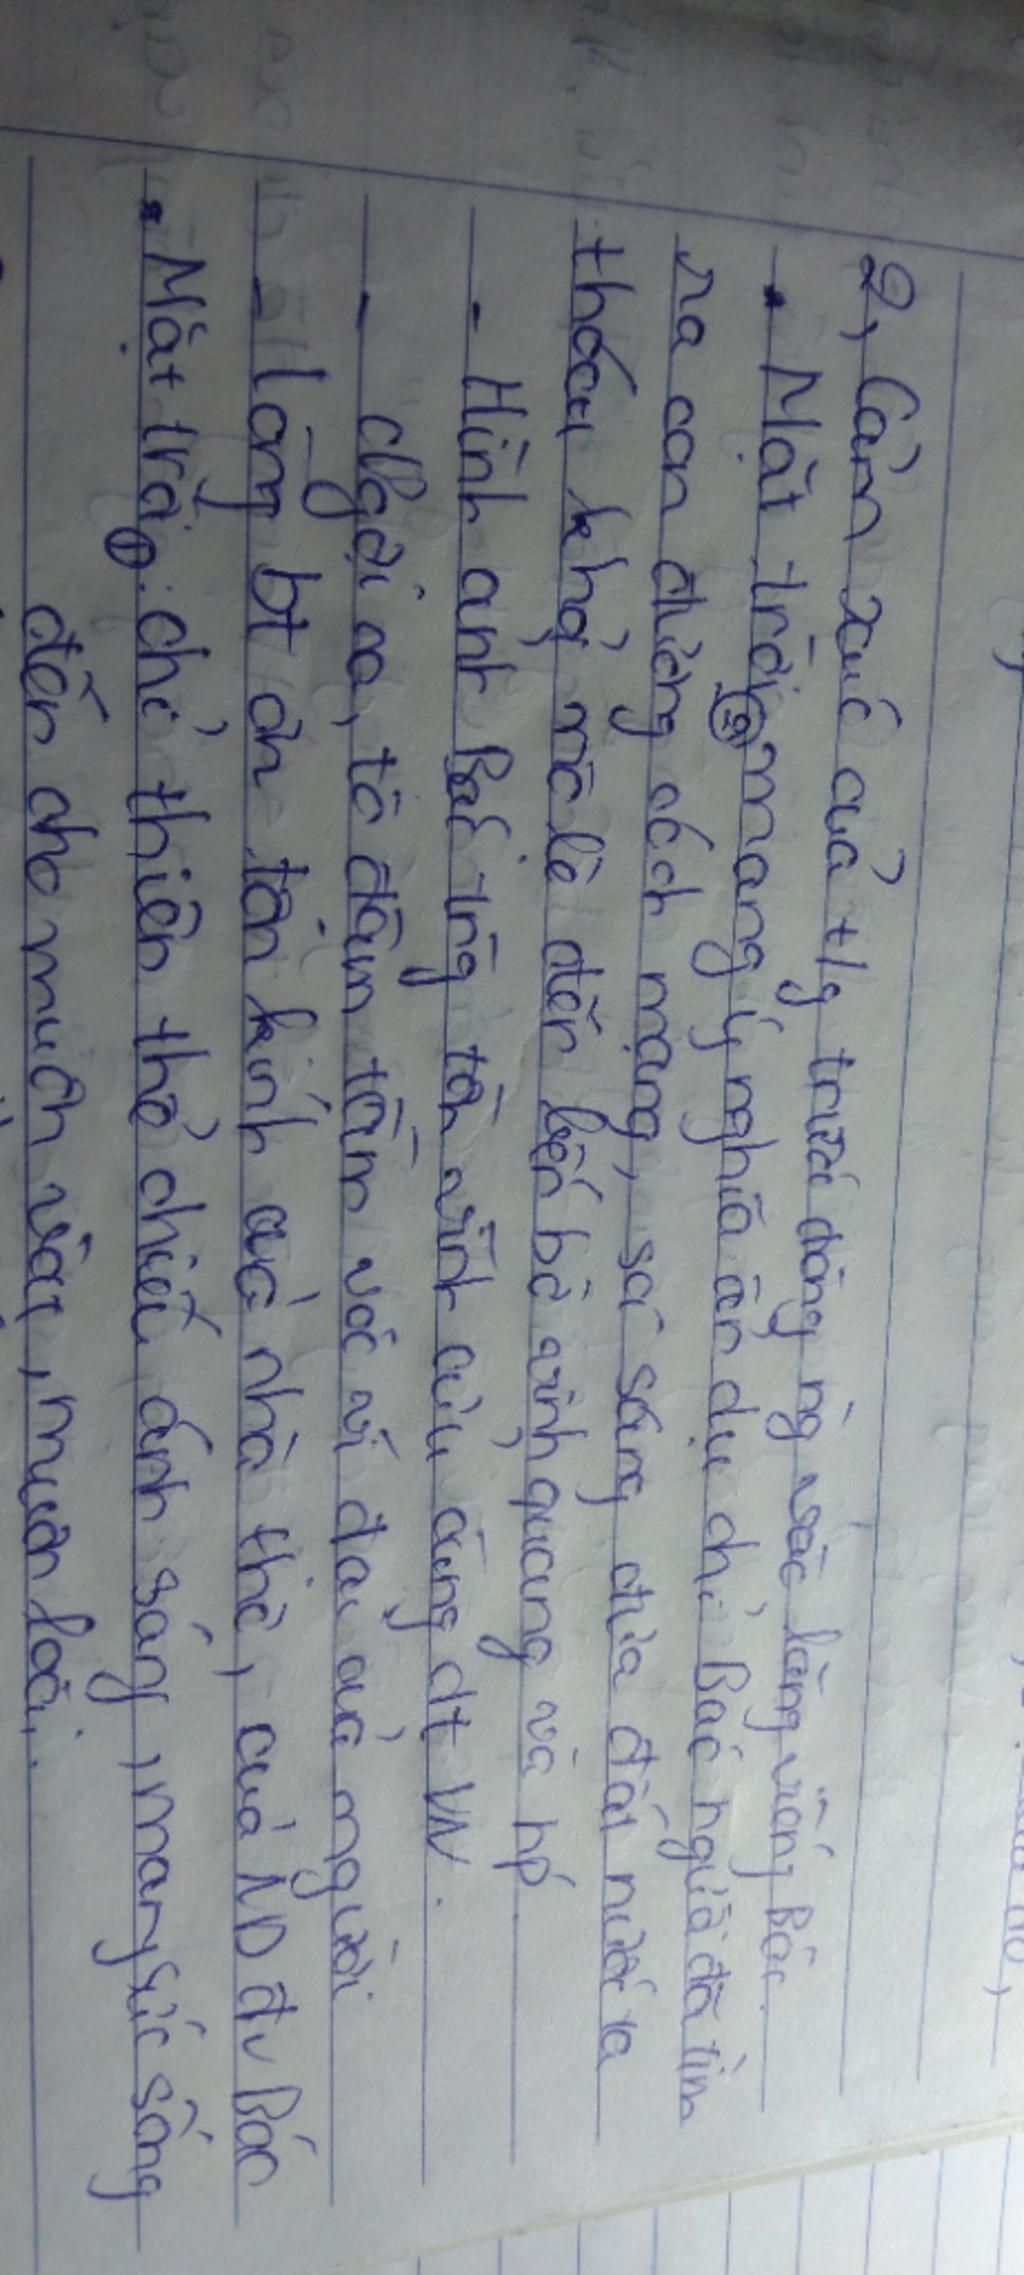 2, Cảm xúc của t/g trước dòng ng vào lăng viếng Bác.
• Mặt trời ② mang ý nghĩa ẩn dụ chỉ Bác người đã tìm
ra con đường cách mạng, soi sáng đưa đất nước ta
thoát khỏi nô lệ đến bến bờ vinh quang và hp
- Hình ảnh Bác trg tồn vĩnh cửu cùng dt VN.
- Ngợi ca, tô đậm tầm vóc vĩ đại của người
- Lòng bt ơn tôn kính của nhà thơ, của ND đv Bác
• Mặt trời ①: chỉ thiên thể chiếu ánh sáng, mang sức sống
đến cho muôn vật, muôn loài.